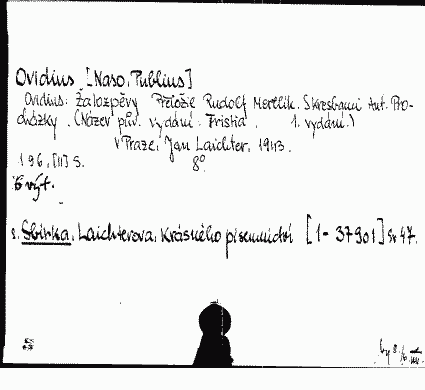 Ovidius [Naso, Publius]
Ovidius: Žalozpěvy. Přeložil Rudolf Mertlík. S kresbami Ant. Pro-
cházky. (Název pův. vydání: Tristia. 1. vydání.)
V Praze, Jan Laichter, 1943.
196, [II] s. 8°
výt.
s. Sbírka, Laichterova, Krásného písemnictví [1-37901] Sv 47.